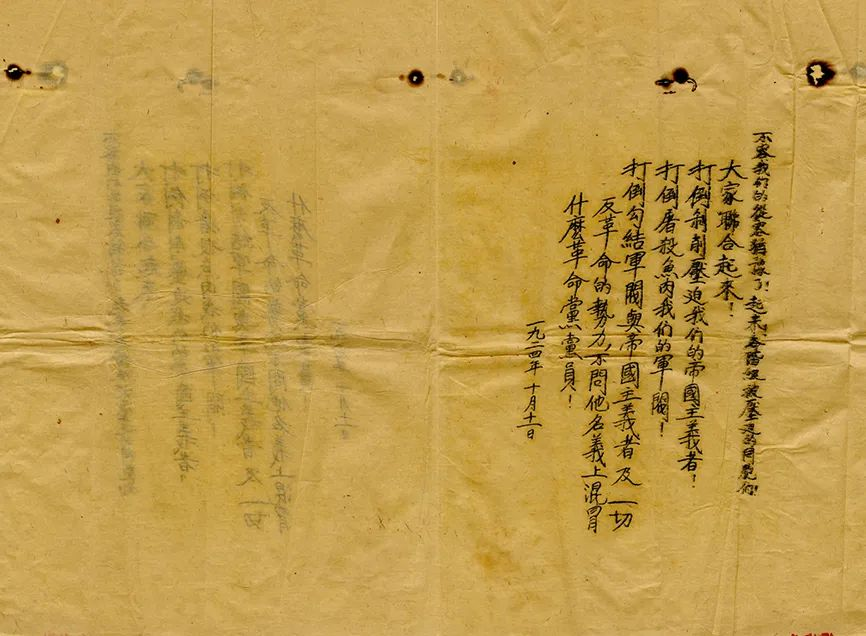 不容我们的從容猶豫了！起来各階級被壓迫的同胞们！
大家聯合起來！
打倒剥削壓迫我們的帝國主義者！
打倒屠殺魚肉我們的軍閥！
打倒勾結軍閥與帝國主義者及一切
反革命的勢力，不問他名義上混冒
什麼革命黨黨員！
一九二四年十月十二日